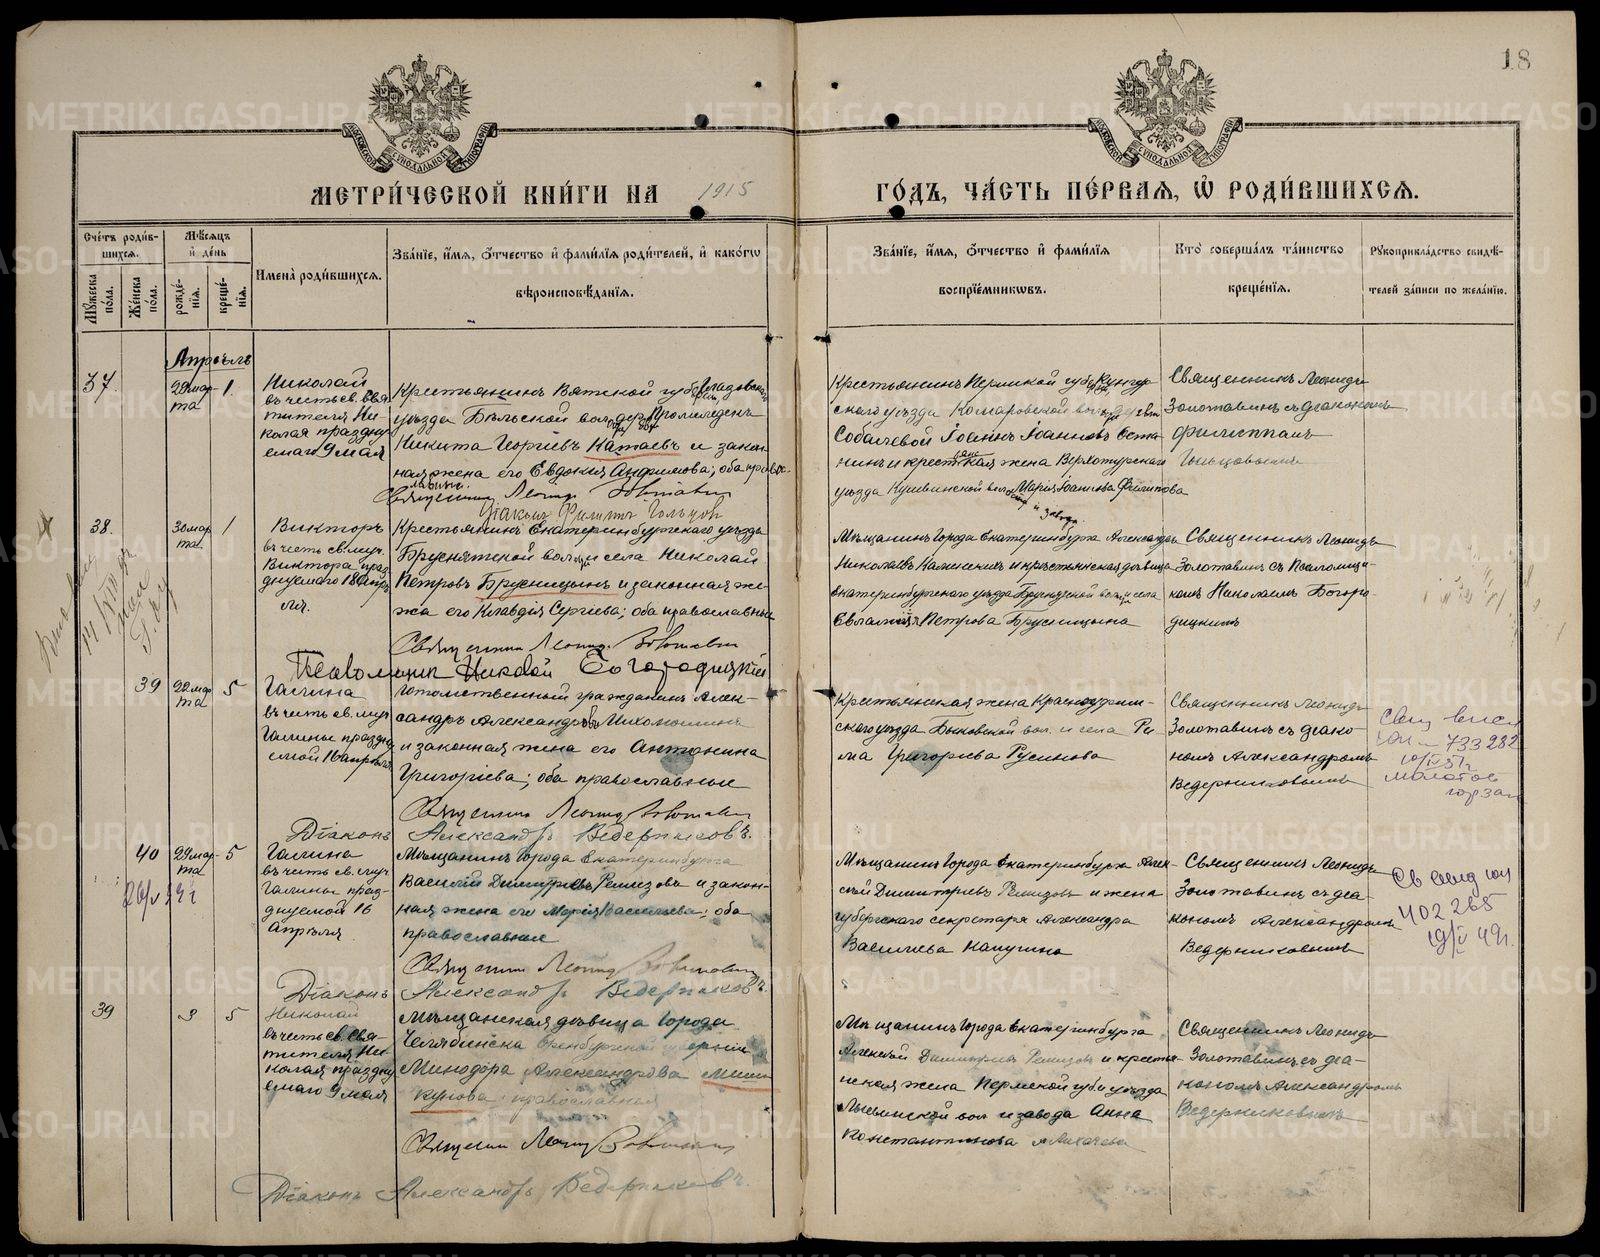 18
МЕТРИ́ЧЕСКОЙ КНИ́ГИ НА 1915 ГО́ДЪ, ЧА́СТЬ ПЕ́РВАѦ, Ѽ РОДИ́ВШИХСѦ.
Сче́тъ роди́вшихсѧ.
Мѣ́сѧцъ и҆ де́нь
Имена̀ роди́вшихсѧ.
Зва́нїе, и҆́мѧ, ѻ҆́тчество и҆ фами́лїѧ роди́телей, и҆ како́гѡ
вѣроисповѣ́данїѧ.
Зва́нїе, и҆́мѧ, ѻ҆́тчество и҆ фами́лїѧ
воспрїе́мникѡвъ.
Кто̀ соверша́лъ та́инство
креще́нїѧ.
Рꙋкоприкла́дство свидѣ́-
телей за́писи по жела́нїю.
Мꙋ́жеска по́ла.
Же́нска по́ла.
рожде́-нїѧ.
креще́-нїѧ.
Апрѣль
37.
29 мар-
та
1
Николай
въ честь св. Свя-
тителя Ни-
колая праздну-
емаго 9 мая
Крестьянинъ Вятской губ. Глазовскаго
уѣзда Бѣльской вол. дер.
Никита Георгіевъ Катаевъ и закон-
ная жена его Евдокія Анфимова; оба правос-
лавные.
Священникъ Леонид Золотавин
Діаконъ Филиппъ Гольцов
Крестьянинъ Пермской губ. Кунгур-
скаго уѣзда Комаровской вол. дер.
Собачевой Іоаннъ Іоанновъ Оста-
нинъ и крестьянская жена Верхотурскаго
уѣзда Кушвинской вол. Марія Іоаннова Филипова
и завода
Священникъ Леонидъ
Золотавинъ съ діакономъ
Филиппомъ
Гольцовымъ
38.
30 мар
та
1
Викторъ
въ честь св. муч.
Виктора праз-
днуемаго 18 апрѣ-
ля.
Крестьянинъ Екатеринбургскаго уѣзда
Брусянской вол. и села Николай
Петровъ Брусницынъ и законная же-
на его Клавдія Сергіева; оба православные
Священникъ Леонид Золотавин
Псаломщик Николай Богородицкій
Мѣщанинъ города Екатеринбурга Александръ
Николаевъ Каменскихъ и крестьянская дѣвица
Екатеринбургскаго уѣзда Брусянской вол. и села
Евлампія Петрова Брусницына
Священникъ Леонидъ
Золотавинъ съ Псаломщи-
комъ Николаемъ Богоро-
дицкимъ
39
22 мар
та
5
Галина
въ честь св. муч.
Галины праздну-
емой 16 апрѣля
Потомственный гражданинъ Алек-
сандръ Александровъ Тихомошинъ
и законная жена его Антонина
Григоріева; оба православные
Священникъ Леонид Золотавин
Діаконъ Александръ Ведерниковъ.
Крестьянская жена Красноуфим-
скаго уѣзда Быковской вол. и села Ри-
ма Григоріева Русинова
Священникъ Леонидъ
Золотавинъ съ діако-
номъ Александромъ
Ведерниковымъ
733282
40
29 мар-
та
5
Галина
въ честь св. муч.
Галины праз-
днуемой 16
апрѣля
Мѣщанинъ города Екатеринбурга
Василій Димитріевъ Ремизовъ и закон-
ная жена его Марія Васильева; оба
православные
Священникъ Леонид Золотавин
Діаконъ Александръ Ведерниковъ.
Мѣщанинъ города Екатеринбурга Алек-
сѣй Димитріевъ Ремизовъ и жена
губернскаго секретаря Александра
Васильева Капугина
Священникъ Леонидъ
Золотавинъ съ діа-
кономъ Александромъ
Ведерниковымъ
402265
39
3
5
Николай
въ честь св. Свя-
тителя Ни-
колая праздну-
емаго 9 мая
Мѣщанская дѣвица города
Челябинска Оренбургской губерніи
Минодора Александрова Мишкунова; православная
Священникъ Леонид Золотавин
Діаконъ Александръ Ведерниковъ.
Мѣщанинъ города Екатеринбурга
Алексѣй Димитріевъ Ремизовъ и кресть-
янская жена Пермской губ. и уѣзда
Лысьвинской вол. и завода Анна
Константинова Лихачева
Священникъ Леонидъ
Золотавинъ съ діа-
кономъ Александромъ
Ведерниковымъ
METRIKI.GASO-URAL.RU